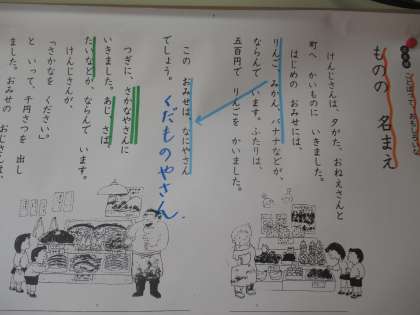 ものの 名まえ
けんじさんは、夕がた、おねえさんと
町へ かいものに いきました。
はじめの おみせには、
りんご、みかん、バナナなどが、
ならんで います。ふたりは、
五百円で りんごを かいました。
この おみせは、なにやさん
でしょう。
くだものやさん
つぎに、さかなやさんに
いきました。あじ、さば、
たいなどが、ならんで います。
けんじさんが、
「さかなを ください。」
と いって、千円さつを 出し
ました。おみせの おじさんは、